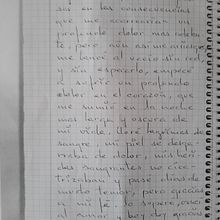 así en las consecuencias
que me acarrearían un
profundo dolor mas
te, pero aún así me arriesgue
me lancé al vacío sin red,
y sin esperarlo, empecé
a sufrir un profundo
dolor en el corazón, que
me sumió en la noche
mas larga y oscura de
mi vida. lloré lágrimas de
sangre, mi piel se desga-
rraba de dolor, mis heri-
das sangrantes no cica-
trizaban y pasé días de
mucho temor, pero gracias
a mi fé, lo superé, use
el amor y hoy day gracias